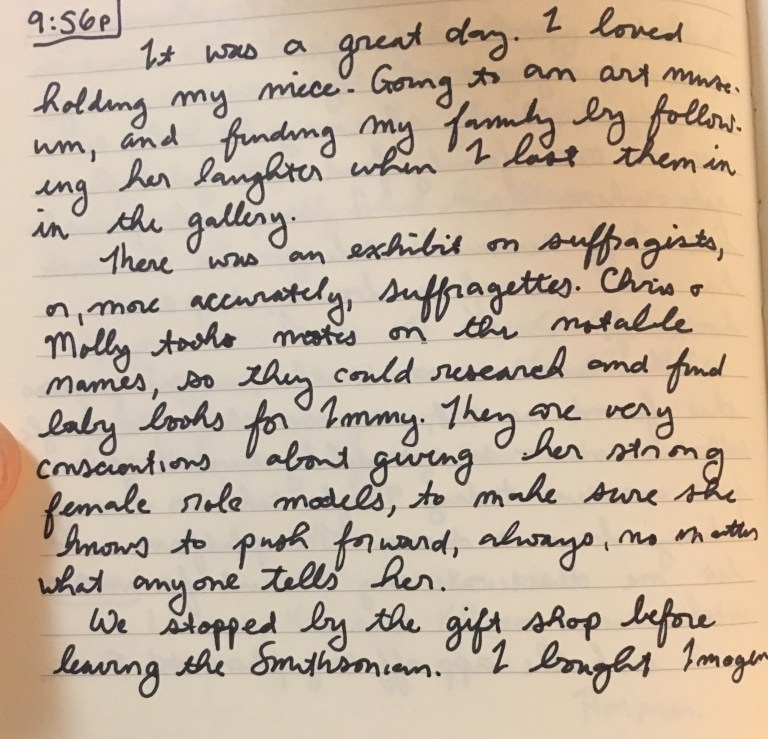 9:56p
It was a great day. I loved
holding my niece. Going to an art muse-
um, and finding my family by follow-
ing her laughter when I lost them in
in the gallery.
There was an exhibit on suffragists,
or, more accurately, suffragettes. Chris &
Molly tooks notes on the notable
names, so they could research and find
baby books for Immy. They are very
conscientious about giving her strong
female role models, to make sure she
knows to push forward, always, no matter
what anyone tells her.
We stopped by the gift shop before
leaving the Smithsonian. I bought Imogen